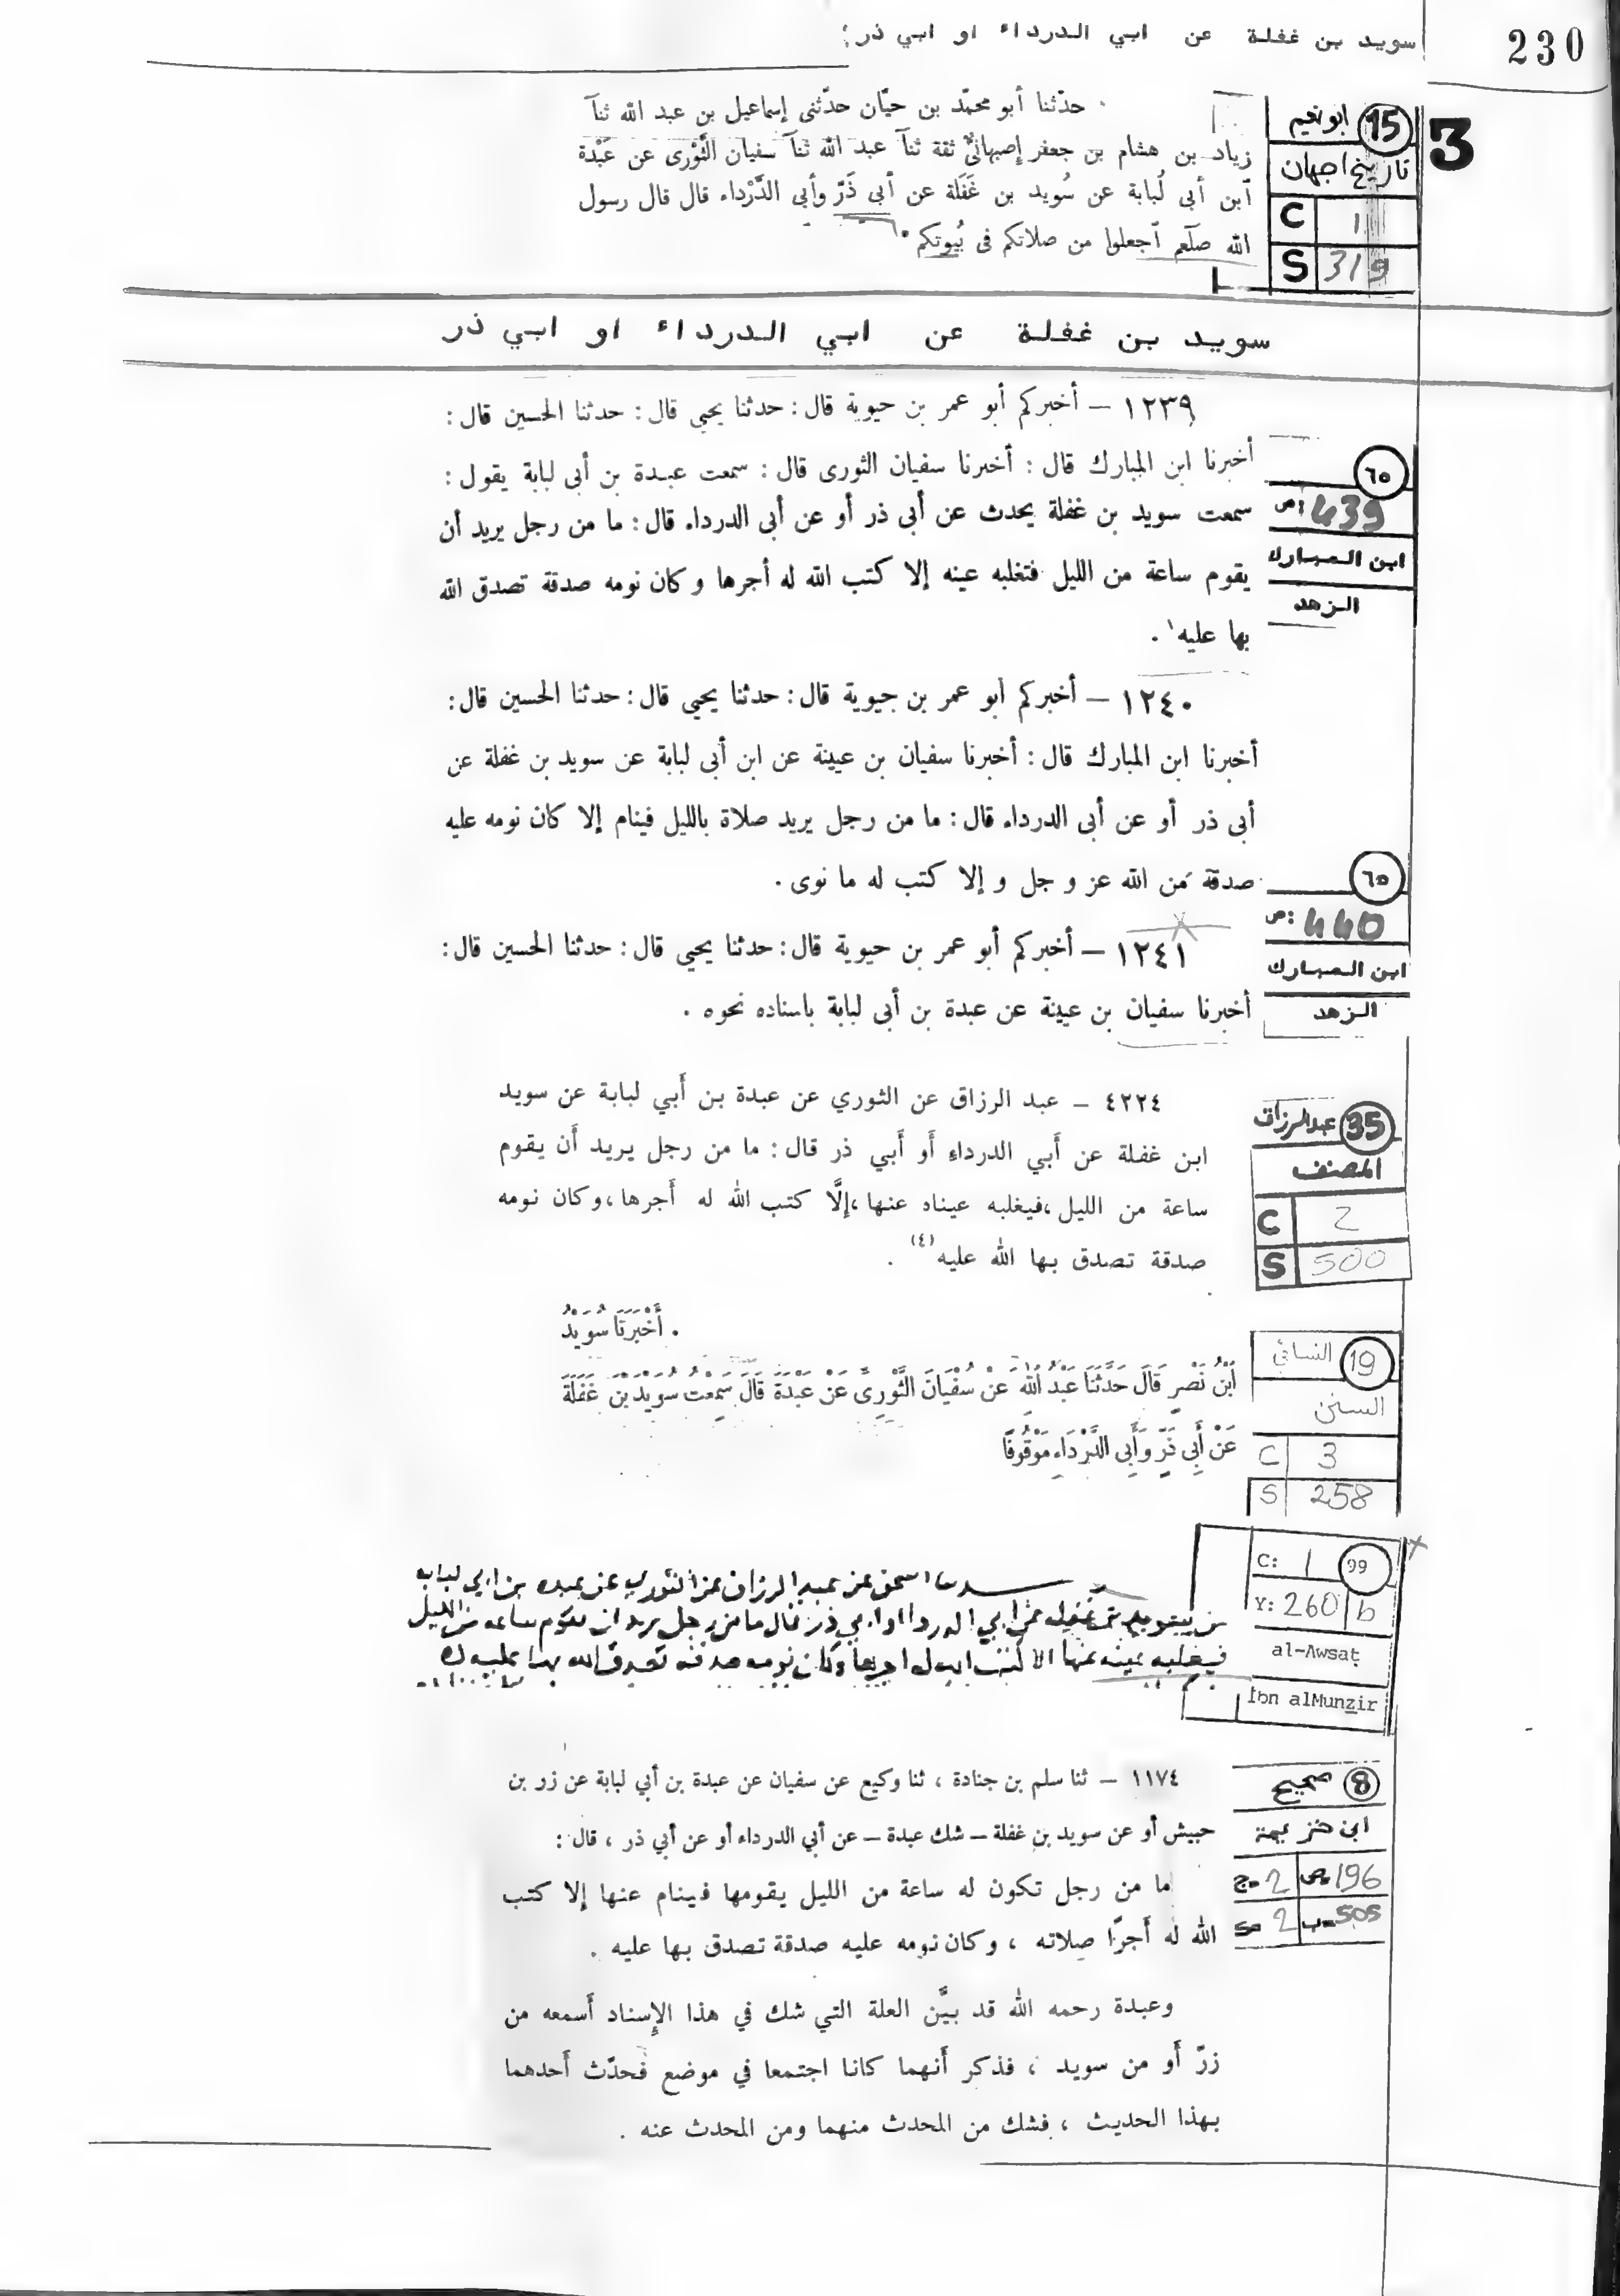 230
سويد بن غفلة عن ابي الدرداء او ابي ذر
3
15 ابو نعيم
C 1
S 319
حدّثنا أبو محمّد بن حيّان حدّثنى إسماعيل بن عبد الله ثنآ
زياد بن هشام بن جعفر إصبهانىّ ثقة ثنآ عبد الله ثنآ سفيان الثَّوْرى عن عَبْدة
آبن أبى لُبابة عن سُويد بن غَفَلة عن أبى ذَرّ وأبى الدَّرْداء قال قال رسول
الله صلّعم آجعلوا من صلاتكم فى بُيوتكم
سويد بن غفلة عن ابي الدرداء او ابي ذر
١٢٣٩ – أخبركم أبو عمر بن حيوية قال: حدثنا يحيى قال: حدثنا الحسين قال:
أخبرنا ابن المبارك قال: أخبرنا سفيان الثورى قال: سمعت عبدة بن أبى لبابة يقول:
سمعت سويد بن غفلة يحدث عن أبى ذر أو عن أبى الدرداء قال: ما من رجل يريد أن
يقوم ساعة من الليل فتغلبه عينه إلا كتب الله له أجرها وكان نومه صدقة تصدق الله
بها عليه١ .
٦٥
ص: 439
ابن المبارك
الزهد
١٢٤٠ – أخبركم أبو عمر بن حيوية قال: حدثنا يحيى قال: حدثنا الحسين قال:
أخبرنا ابن المبارك قال: أخبرنا سفيان بن عيينة عن ابن أبى لبابة عن سويد بن غفلة عن
أبى ذر أو عن أبى الدرداء قال: ما من رجل يريد صلاة بالليل فينام إلا كان نومه عليه
صدقة من الله عز و جل و إلا كتب له ما نوى .
٦٥
ص: 440
ابن المبارك
الزهد
١٢٤١ – أخبركم أبو عمر بن حيوية قال: حدثنا يحيى قال: حدثنا الحسين قال:
أخبرنا سفيان بن عيينة عن عبدة بن أبى لبابة باسناده نحوه .
35 عبد الرزاق
المصنف
C 2
S 500
٤٢٢٤ – عبد الرزاق عن الثوري عن عبدة بن أَبي لبابة عن سويد
ابن غفلة عن أَبي الدرداءِ أَو أَبي ذر قال: ما من رجل يريد أَن يقوم
ساعة من الليل، فيغلبه عيناه عنها، إلَّا كتب الله له أَجرها، وكان نومه
صدقة تصدق بها الله عليه (٤) .
19 النسائي
السنن
C 3
S 258
. أَخْبَرَنَا سُوَيْدُ
ابْنُ نَصْرٍ قَالَ حَدَّثَنَا عَبْدُ اللهِ عَنْ سُفْيَانَ الثَّوْرِىِّ عَنْ عَبْدَةَ قَالَ سَمِعْتُ سُوَيْدَ بْنَ غَفَلَةَ
عَنْ أَبِى ذَرٍّ وَأَبِى الدَّرْدَاءِ مَوْقُوفًا
99 C: 1
Y: 260 b
al-Awsaṭ
Ibn alMunẓir
اسحق عن عبد الرزاق عن الثوري عن عبده بن ابي لبابه
عن ابي الدردا او ابي ذر قال ما من رجل يريد ان يقوم ساعه من الليل
فيغلبه عينه عنها الا كتب الله له اجرها وكان نومه صدقه تصدق الله بها عليه
8 صحيح
ابن خزيمة
ج- 2 ص- 196
2 ب- 505
١١٧٤ – ثنا سلم بن جنادة ، ثنا وكيع عن سفيان عن عبدة بن أبي لبابة عن زر بن
حبيش أو عن سويد بن غفلة – شك عبدة – عن أبي الدرداء أو عن أبي ذر ، قال :
ما من رجل تكون له ساعة من الليل يقومها فينام عنها إلا كتب
الله له أَجرَ صلاته ، وكان نومه عليه صدقة تصدق بها عليه .
وعبدة رحمه الله قد بيَّن العلة التي شك في هذا الإِسناد أَسمعه من
زرّ أَو من سويد ، فذكر أَنهما كانا اجتمعا في موضع فحدّث أَحدهما
بهذا الحديث ، فشك من المحدث منهما ومن المحدث عنه .